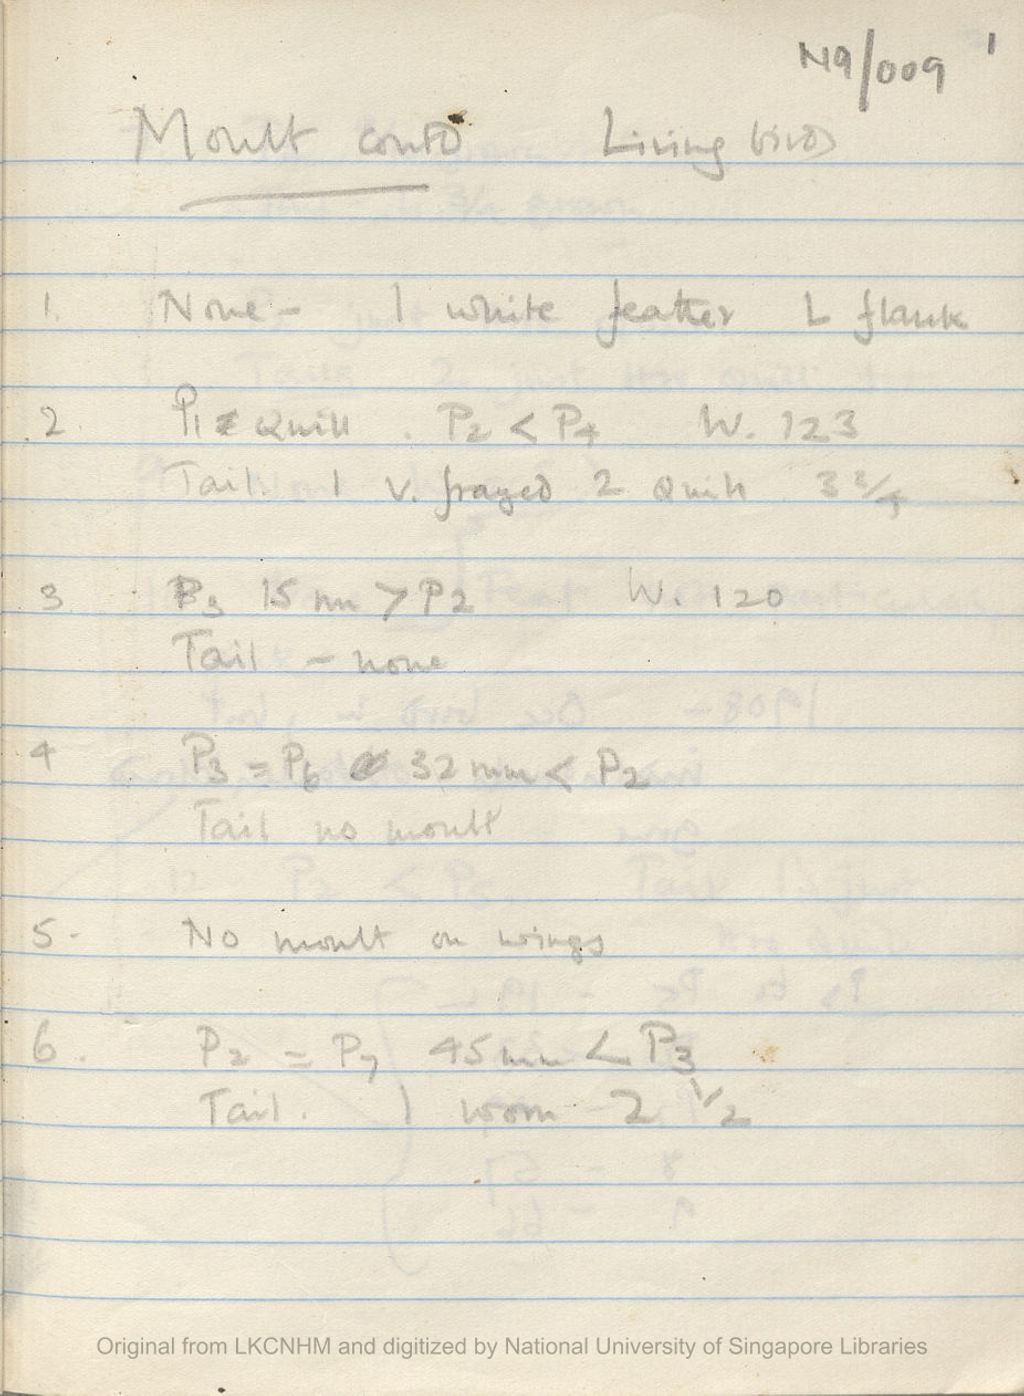 N9/009 1
Moult contd Living birds
1. None - 1 white feather L flank
2. P1 = Quill . P2 < P4 W. 123
Tail. 1 V. frayed 2 Quill 3 2/4
3 P3 15 mm > P2 W. 120
Tail - none
4 P3 = P6 32 mm < P2
Tail no moult
5 - No moult on wings
6. P2 = P7 45 mm < P3
Tail. 1 worn 2 1/2
Original from LKCNHM and digitized by National University of Singapore Libraries